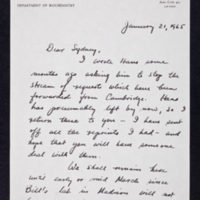 DEPARTMENT OF BIOCHEMISTRY
January 21, 1965
Dear Sydney,
I wrote Hans some
months ago asking him to stop the
stream of requests which have been
forwarded from Cambridge. Hans
has presumably left by now, so I
return these to you - I have sent
off all the reprints I had - and
hope that you will have someone
deal with them.
We shall remain here
until early or mid March since
Bill's lab in Madison will not